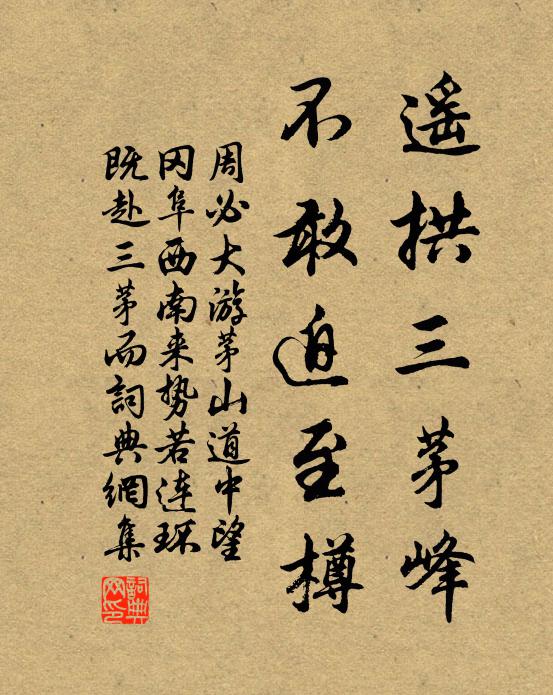 遥拱三茅峰
不敢迫至樽
周必大游茅山道中望
冈阜西南来势若连环
既赴三茅而詞典網集
詞典网印